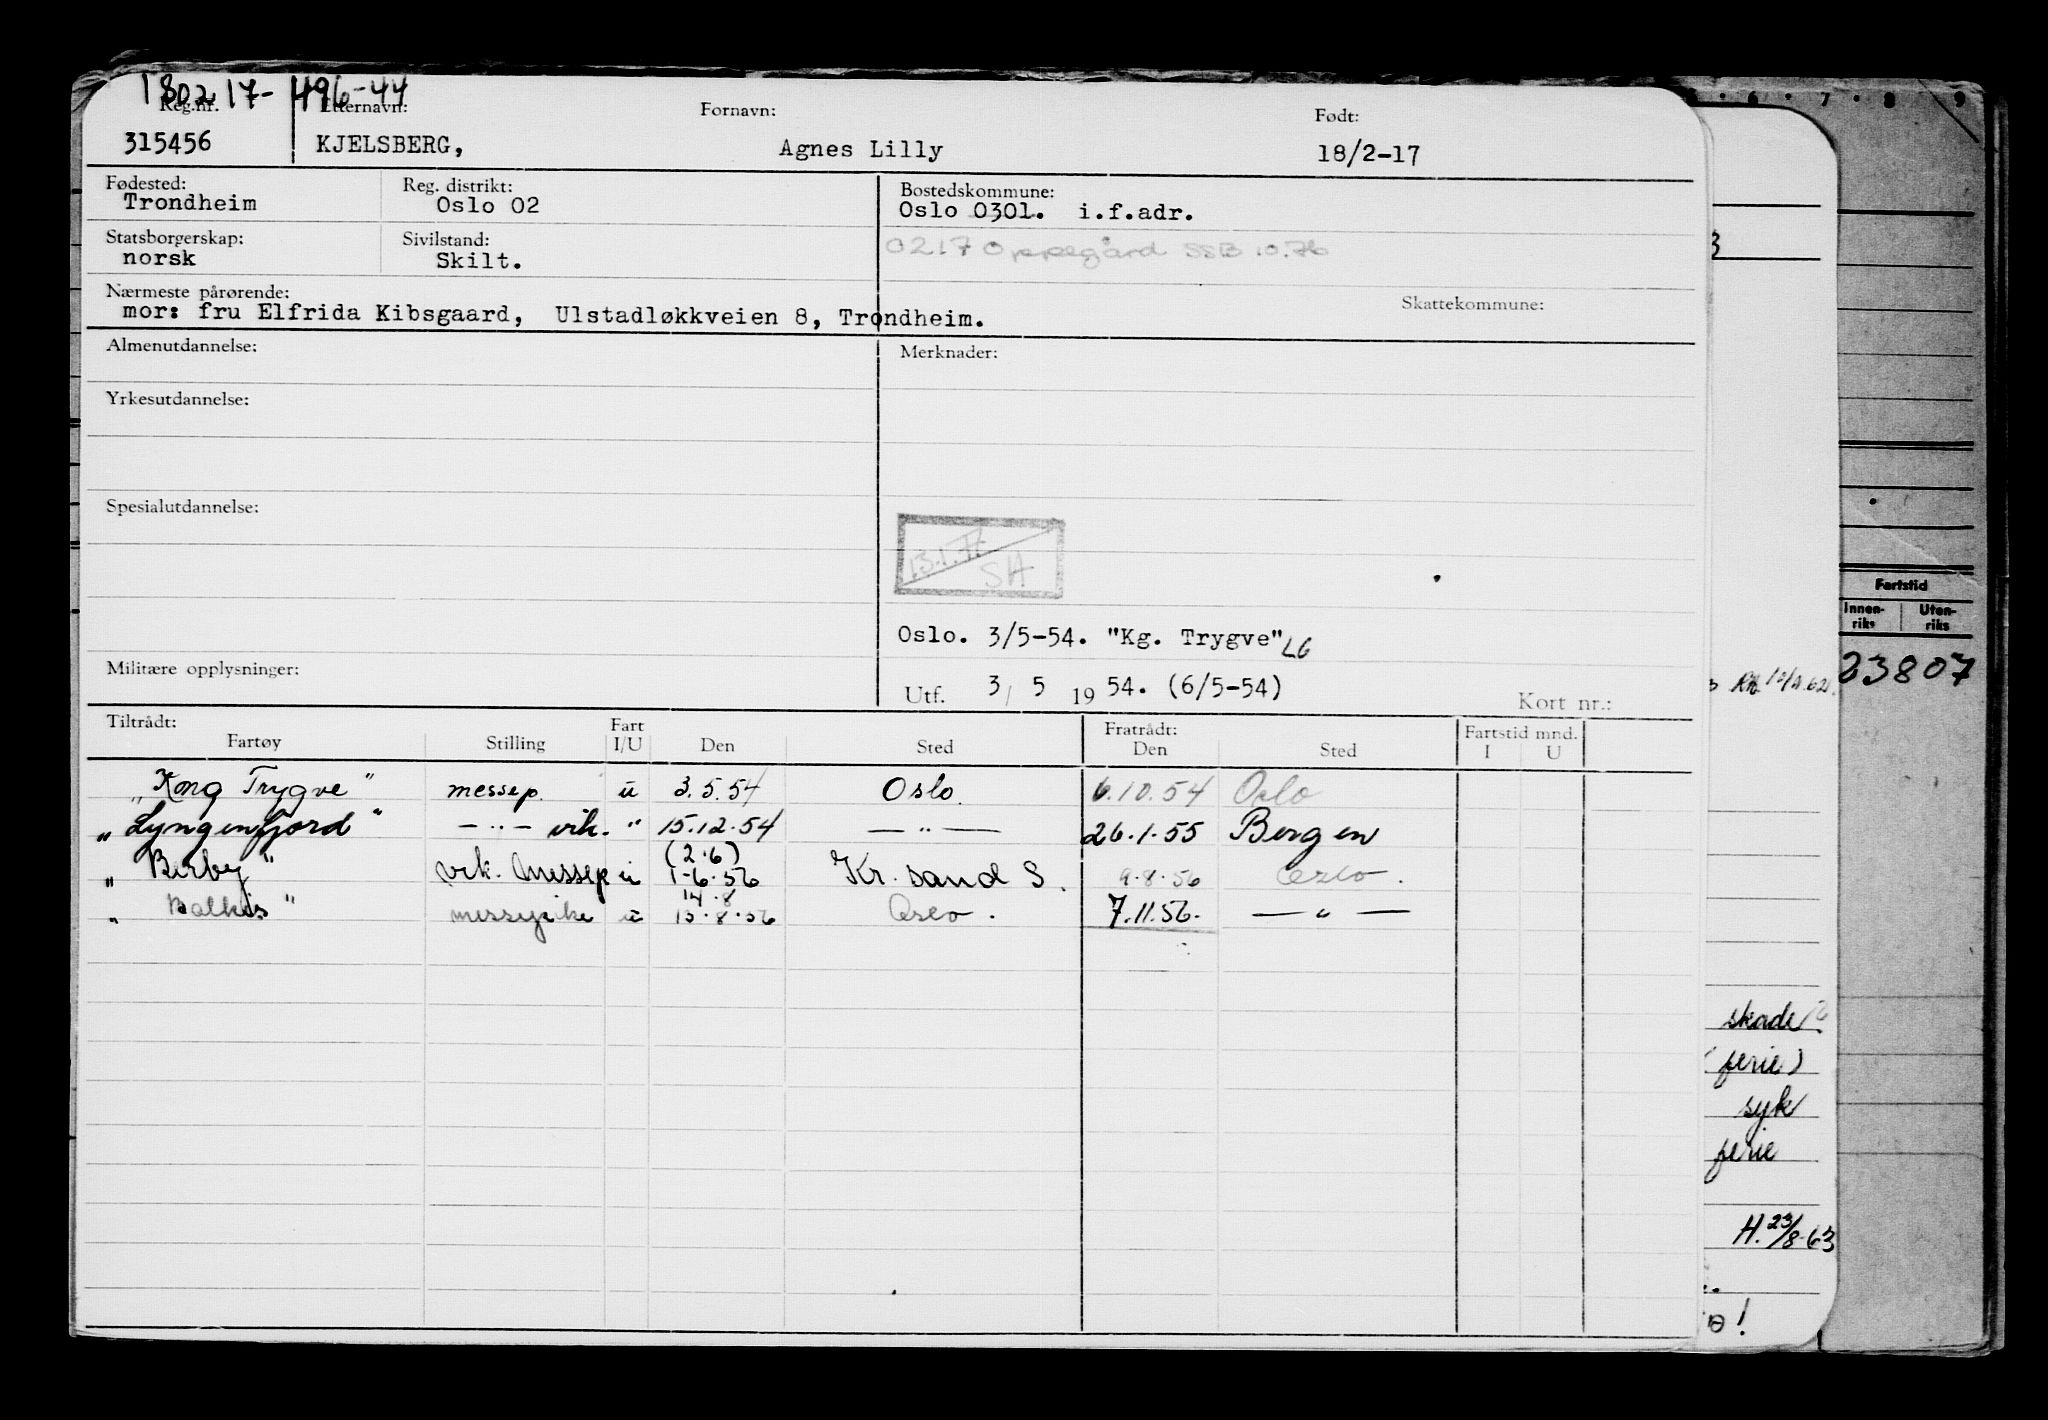 180217-49644
Reg.nr. Etternavn: Fornavn: Født:
315456 KJELSBERG, Agnes Lilly 18/2-17
Fødested: Reg. distrikt: Bostedskommune:
Trondheim Oslo 02 Oslo 0301. i.f.adr.
Statsborgerskap: Sivilstand: 0217 Oppegård SSB 10.76
norsk Skilt.
Nærmeste pårørende: Skattekommune:
mor: fru Elfrida Kibsgaard, Ulstadløkkveien 8, Trondheim.
Almenutdannelse: Merknader:
Yrkesutdannelse:
Spesialutdannelse:
13.1.77
SH
Oslo. 3/5-54. "Kg. Trygve" LG
Militære opplysninger:
Utf. 3/ 5 19 54. (6/5-54) Kort nr.:
Tiltrådt: Fart Fratrådt: Fartstid mnd.
Fartøy Stilling I/U Den Sted Den Sted I U
"Kong Trygve" messep. u 3.5.54 Oslo. 6.10.54 Oslo
"Lyngenfjord" — " — vik. " 15.12.54 — " — 26.1.55 Bergen
(2.6)
"Berby" vik. messep u 1-6.56 Kr. sand S. 9.8.56 Oslo.
14.8
"Balkis" messepike u 15.8.56 Oslo. 7.11.56. — " —
6 7 8 9
3
Fartstid
Innen-
riks
Uten-
riks
23807
skade
(ferie)
syk
ferie
H. 23/8-63
!